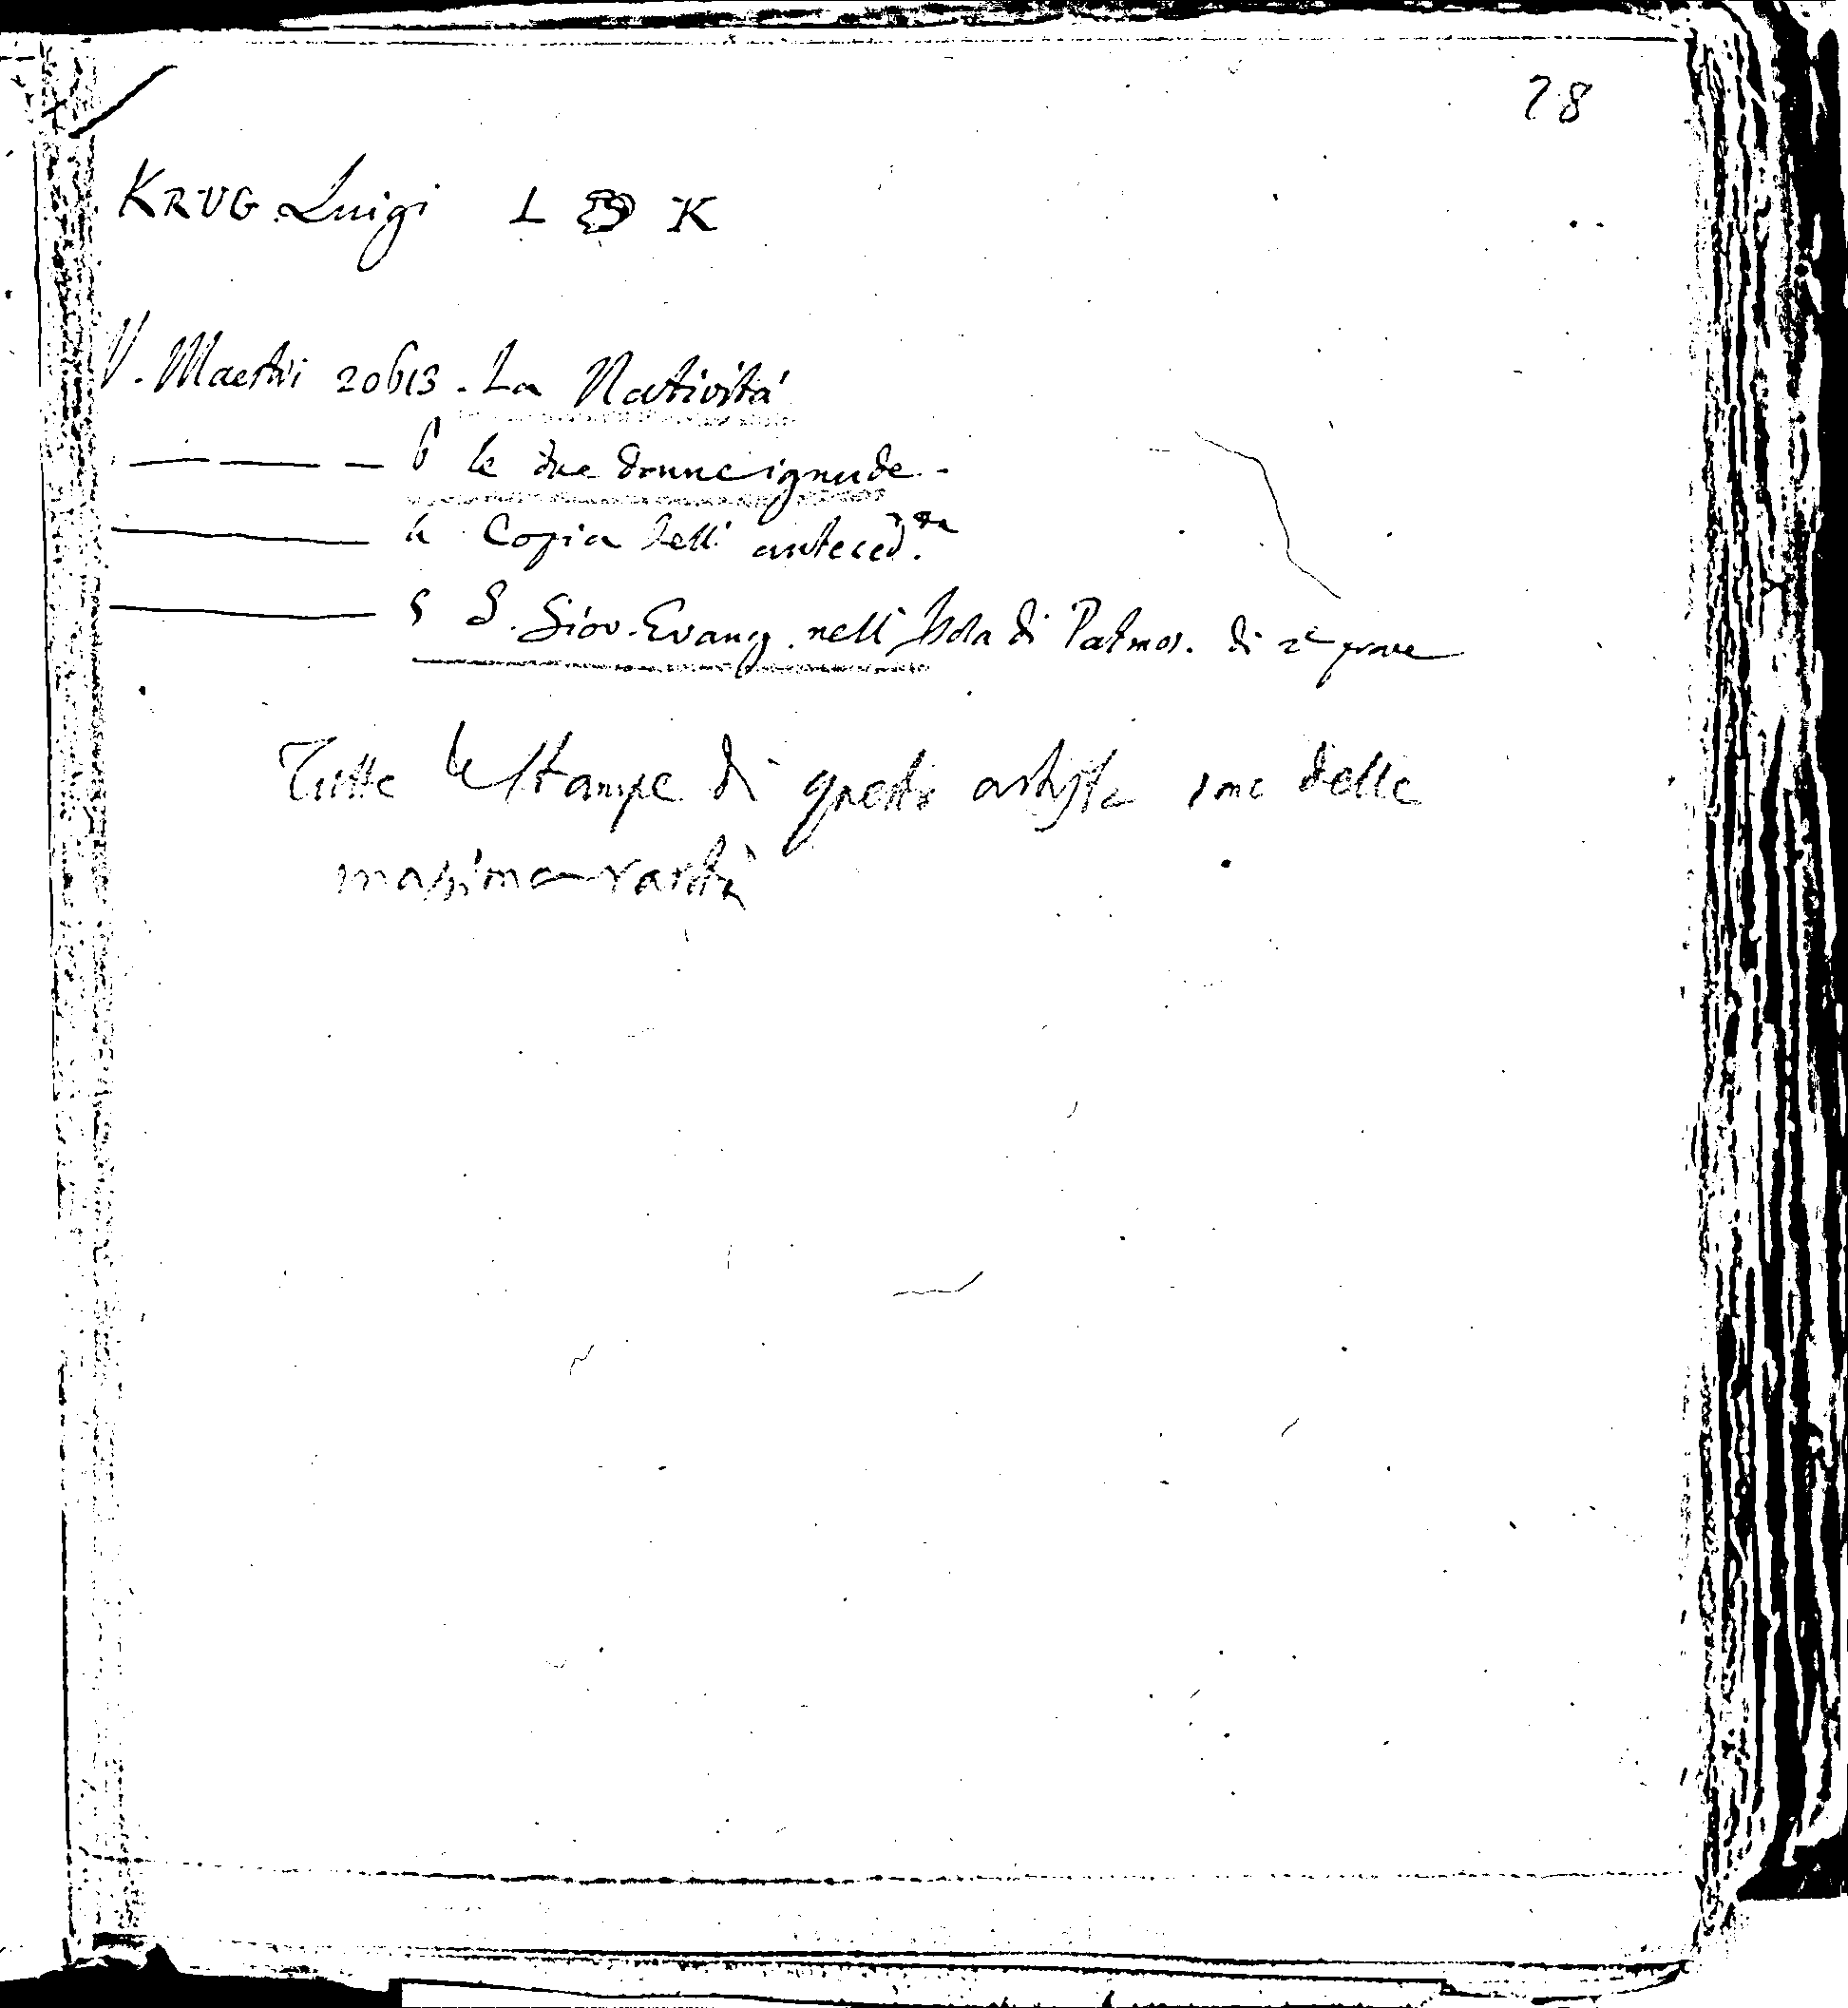 78
KRUG Luigi L K
V. Maestri 20613. La Natività
6 le due donne ignude.
4 Copia dell' anteced.te
5 S. Giov. Evang. nell' Isola di Patmos. di 2e prove
Tutte le stampe di questo artista sono della
massima rarità